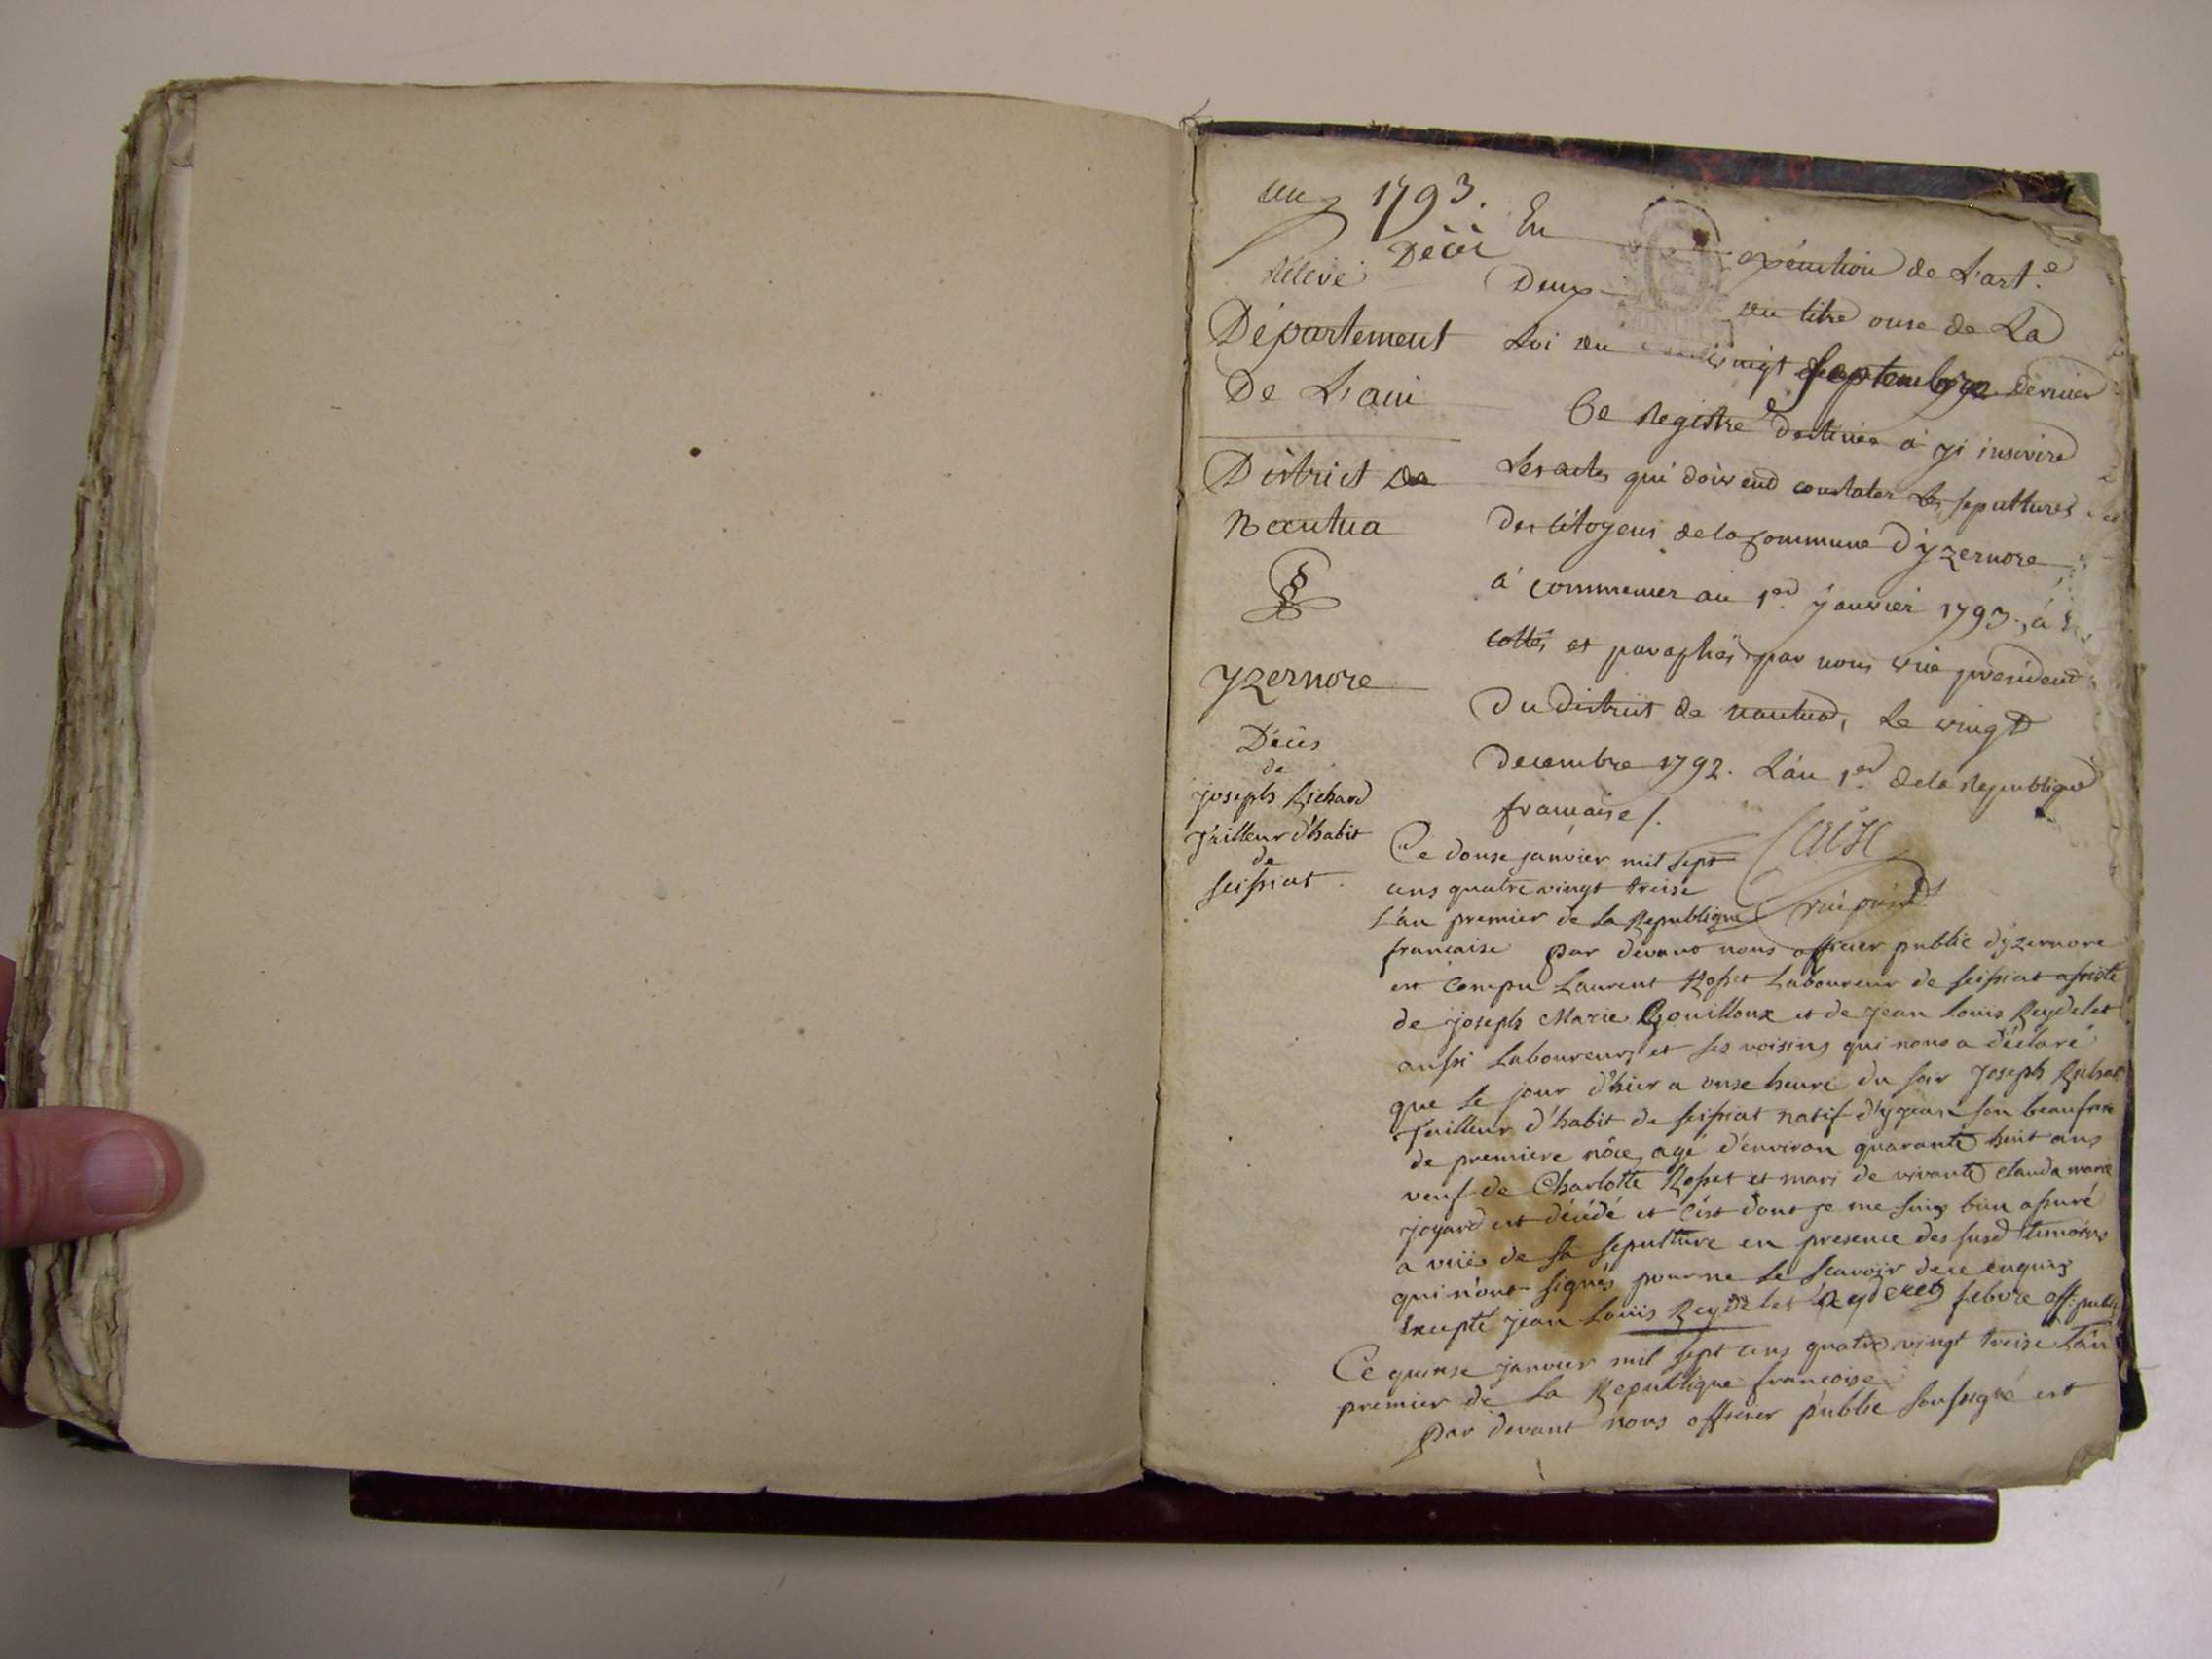 1793.
Décès
relevé
Département
De L'ain
District de
Nantua
yzernore
Décès
de
joseph Richard
Tailleur d'habit
de
Seissiat
En exécution de L'art.e
Deux du titre onse de La
Loi du vingt Septembre dernier
Ce Registre destinée à yi inscrire
Les actes qui doivend constater les sepultures
des citoyens de la Commune d'yzernore
à commencer au 1er janvier 1793. à
cottés et paraphés par nous vice president
Du District de nantua, Le vingt
decembre 1792. L'an 1er de la Republique
française /.
vice présidt
Ce douse janvier mil sept
cens quatre vingt treise
L'an premier de la Republique
francaise par devant nous officier public d'yzernore
est Compu Laurent Rosset Laboureur de seissiat assisté
de joseph Marie Gouilloux et de jean Louis Reydelet
aussi Laboureurs et ses voisins qui nous a déclaré
que le jour d'hier a onse heure du soir Joseph Richard
Tailleur d'habit de seissiat natif d' son beaufrere
de premiere nôce, agé d'environ quarante huit ans
veuf de Charlotte Rosset et mari de vivante claudamarie
joyard est décédé et c'est dont je me suis bien assuré
a vüe de sa sepulture en presence des susd témoins
qui n'ont signés pour ne le scavoir de ce enquis
Excepté jean Louis Reydelet Reydellet febvre off: public
Ce quinse janvier mil sept cens quatre vingt treise L'an
premier de la Republique françoise
par devant nous officier public soussigné est